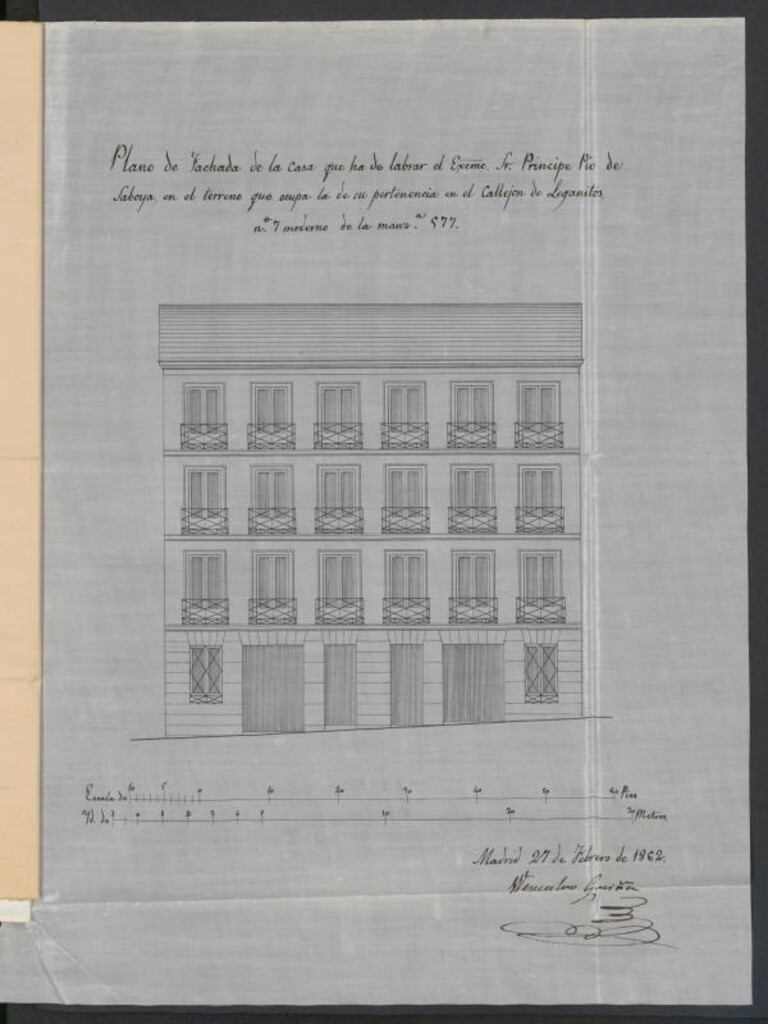 Plano de Fachada de la Casa que ha de labrar el Exmo. Sr. Principe Pio de
Saboya, en el terreno que ocupa la de su pertenencia en el Callejon de Leganitos,
n.º 7 moderno de la manz.ª 577.
Escala de 10 5 0 10 20 30 40 50 60 Pies
Yd. de 1 0 1 2 3 4 5 10 20 30 Metros
Madrid 27 de Febrero de 1862.
Wenceslao Gaviña